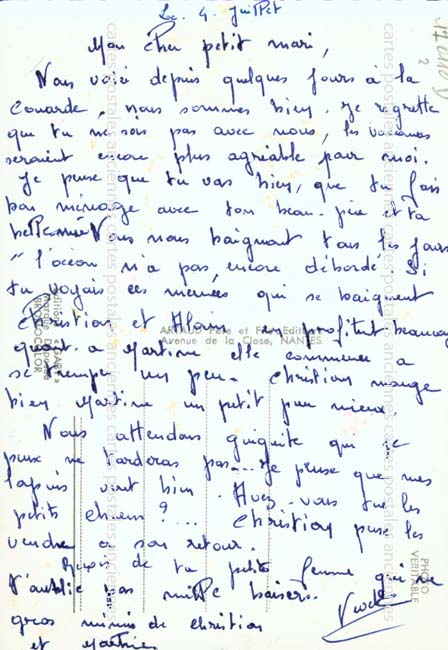 Le 4 Juillet
Mon cher petit mari,
Nous voici depuis quelques jours à la
couarde, nous sommes bien. Je regrette
que tu ne sois pas avec nous, les vacances
seraient encore plus agréable pour moi.
Je pense que tu vas bien, que tu fais
bon ménage avec ton beau-père et ta
belle mère Nous nous baignant tous les jours
"l'océan n'a pas encore débordé. Si
tu voyais ces mémères qui se baignent
Christian et Alain en profitent beaucoup
quant a Martine elle commence a
se tremper un peu. Christian mange
bien Martine un petit peu mieux.
Nous attendons guiguite qui je
pense ne tarderas pas... Je pense que mes
lapins vont bien. Avez-vous tué les
petits chiens?... Christian pense les
vendre a son retour.
Reçois de ta petite femme qui ne
t'oublie pas mille baisers.
gros mimis de christian
et Martine
2
ARTAUD Père et Fils Editeurs
Avenue de la Close, NANTES
Editions "GABY"
Marque Déposée
BROMOCOLOR
PHOTO
VERITABLE
cartes postales anciennes